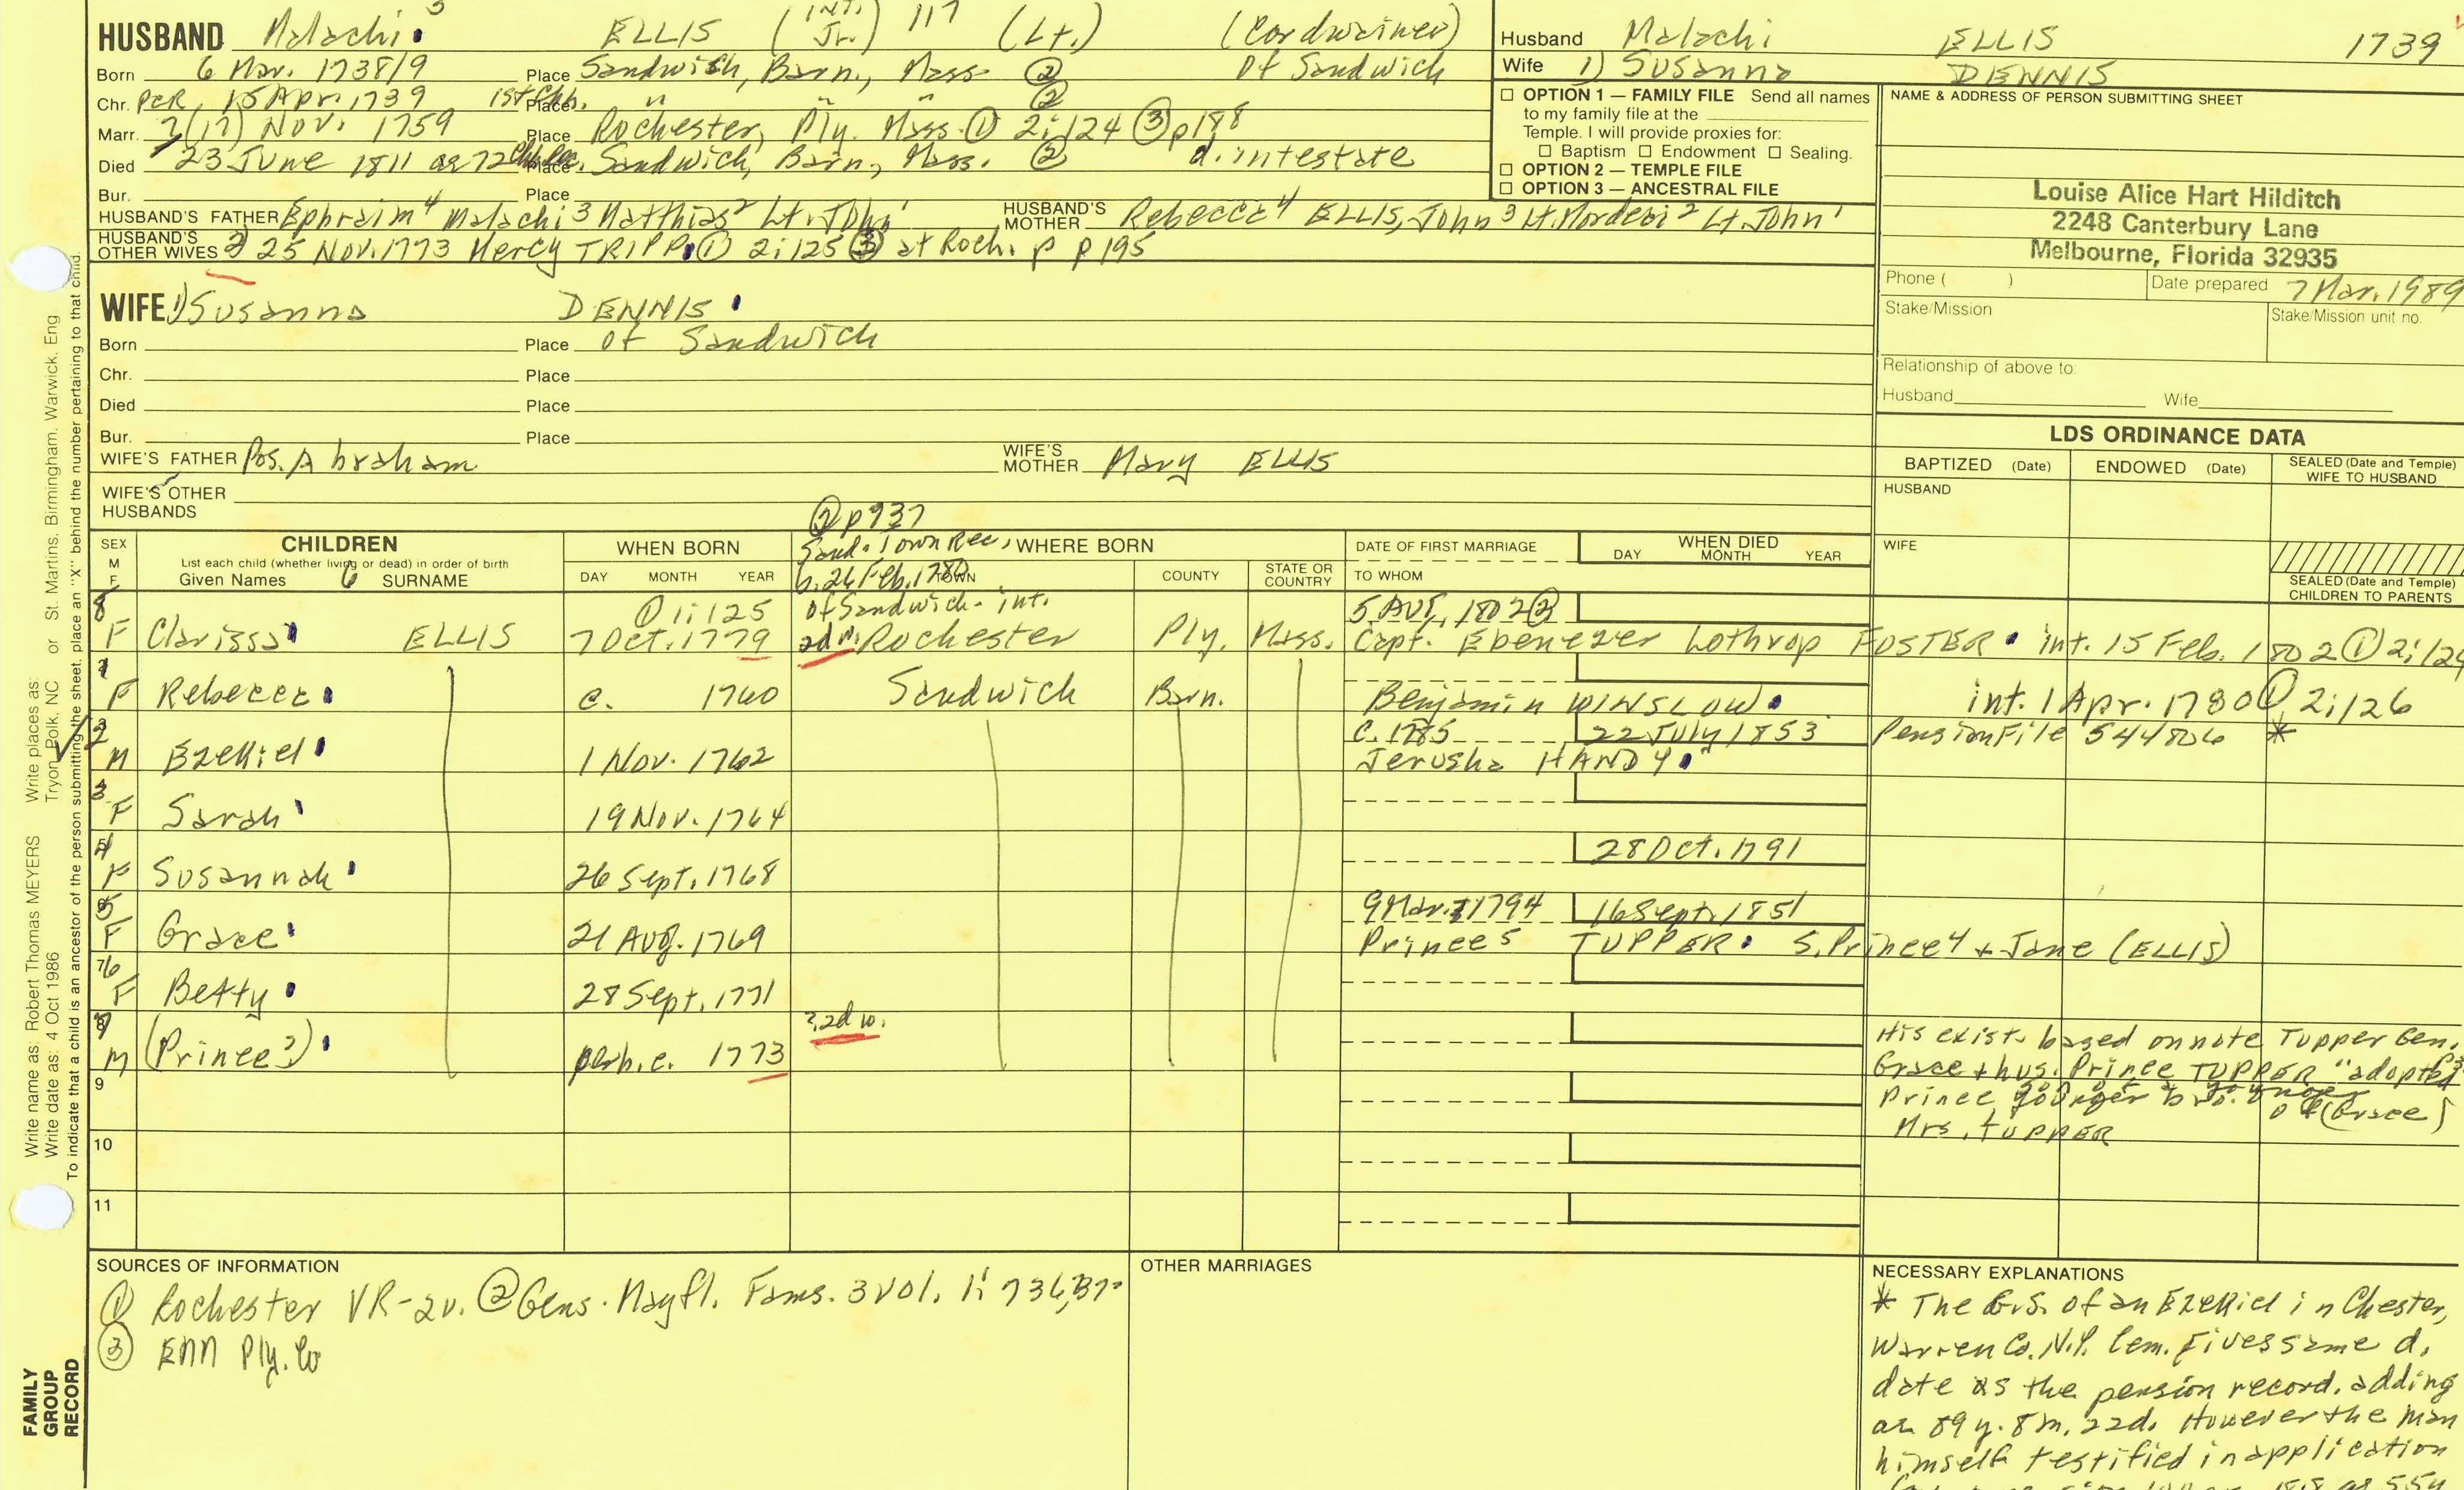 HUSBAND Malachi 5 ELLIS (INT. Jr.) 117 (Lt.) (Cordwainer)
Born 6 Mar. 1738/9 Place Sandwich, Barn., Mass ② Of Sandwich
Chr. PCR, 15 Apr. 1739 1st Chh. Place " " " ②
Marr. 7(17) Nov. 1759 Place Rochester, Ply. Mass. ① 2:124 ③ p188
Died 23 June 1811 ae 72 Chh Rec. Place Sandwich, Barn., Mass. ② d. intestate
Bur. Place
HUSBAND'S FATHER Ephraim 4 Malachi 3 Matthias 2 Lt. John 1 HUSBAND'S MOTHER Rebecca 4 ELLIS, John 3 Lt. Mordecai 2 Lt. John 1
HUSBAND'S OTHER WIVES 2) 25 Nov. 1773 Mercy TRIPP ① 2:125 ③ at Roch. p p 195
Husband Malachi ELLIS 1739
Wife 1) Susanna DENNIS
☐ OPTION 1 — FAMILY FILE Send all names
to my family file at the
Temple. I will provide proxies for:
☐ Baptism ☐ Endowment ☐ Sealing.
☐ OPTION 2 — TEMPLE FILE
☐ OPTION 3 — ANCESTRAL FILE
NAME & ADDRESS OF PERSON SUBMITTING SHEET
Louise Alice Hart Hilditch
2248 Canterbury Lane
Melbourne, Florida 32935
Phone ( ) Date prepared 7 Mar. 1989
Stake/Mission Stake/Mission unit no.
Relationship of above to:
Husband Wife
WIFE 1) Susanna DENNIS
Born Place of Sandwich
Chr. Place
Died Place
Bur. Place
WIFE'S FATHER Pos. Abraham WIFE'S MOTHER Mary ELLIS
WIFE'S OTHER HUSBANDS
LDS ORDINANCE DATA
BAPTIZED (Date) ENDOWED (Date) SEALED (Date and Temple) WIFE TO HUSBAND
HUSBAND
WIFE
SEALED (Date and Temple) CHILDREN TO PARENTS
② p937
Sand. Town Rec,
b. 26 Feb. 1780
SEX M F
CHILDREN
List each child (whether living or dead) in order of birth
Given Names 6 SURNAME
WHEN BORN
DAY MONTH YEAR
WHERE BORN
TOWN COUNTY STATE OR COUNTRY
DATE OF FIRST MARRIAGE
TO WHOM
WHEN DIED
DAY MONTH YEAR
8 ① 1:125 of Sandwich - int. 5 Aug. 1802 ②
F Clarissa ELLIS 7 Oct. 1779 2d w. Rochester Ply. Mass. Capt. Ebenezer Lothrop FOSTER int. 15 Feb. 1802 ① 2:124
1
F Rebecca c. 1760 Sandwich Barn. Benjamin WINSLOW int. 1 Apr. 1780 ① 2:126
2 c. 1785 22 July 1853 Pension File 544806 *
M Ezekiel 1 Nov. 1762 Jerusha HANDY
3
F Sarah 19 Nov. 1764
4 28 Oct. 1791
F Susannah 26 Sept. 1768
5 9 Mar. 1794 16 Sept. 1851
F Grace 21 Aug. 1769 Prince 5 TUPPER S. Prince 4 + Jane (ELLIS)
7 6
F Betty 28 Sept. 1771
7 ? 2d w.
M (Prince?) perh. c. 1773
His exist. based on note Tupper Gen.
Grace + hus. Prince TUPPER "adopted
Prince younger bro. of (Grace)
Mrs. TUPPER
9
10
11
SOURCES OF INFORMATION
① Rochester VR-2v. ② Gens. Mayfl. Fams. 3 vol. 1: 736,37-
③ ENN Ply. Co
OTHER MARRIAGES
NECESSARY EXPLANATIONS
* The G.S. of an Ezekiel in Chester,
Warren Co. N.Y. Cem. gives same d.
date as the pension record, adding
ae 89 y. 8 m. 22d. However the man
himself testified in application
Write name as: Robert Thomas MEYERS Write places as: Tryon, Polk, NC or St. Martins, Birmingham, Warwick, Eng
Write date as: 4 Oct 1986
To indicate that a child is an ancestor of the person submitting the sheet, place an "X" behind the number pertaining to that child.
FAMILY
GROUP
RECORD